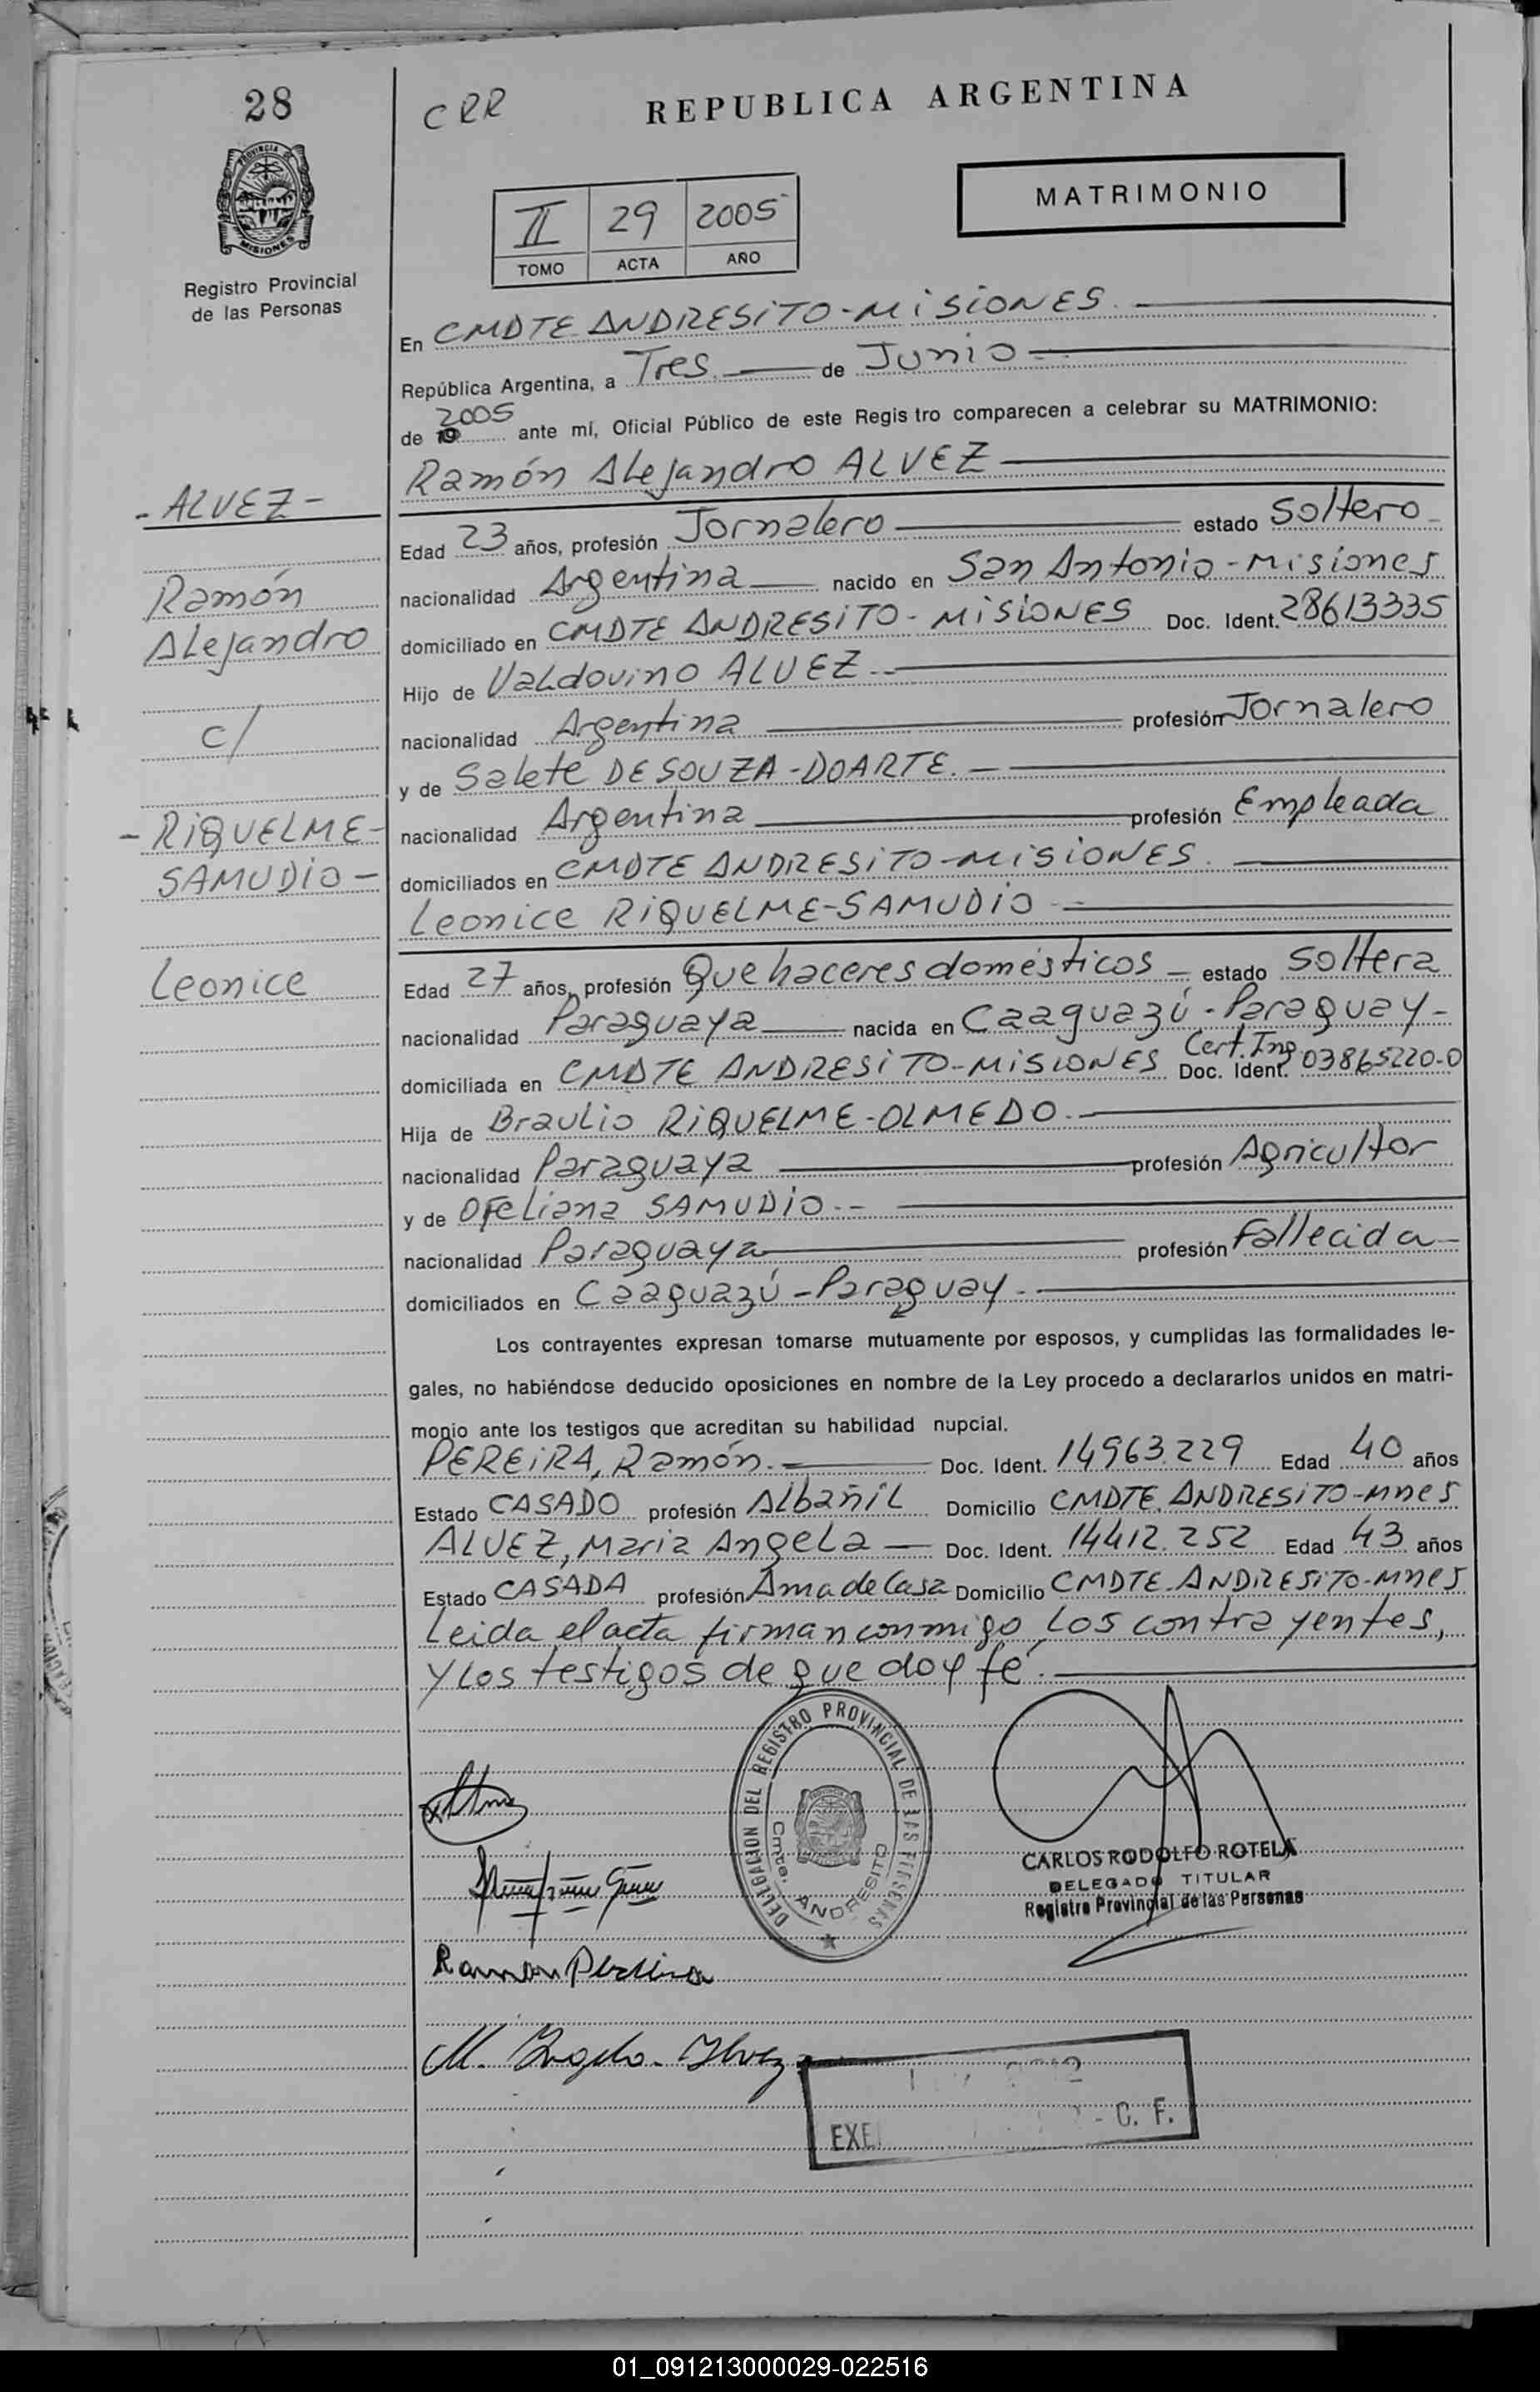 28
CRR
REPUBLICA ARGENTINA
MATRIMONIO
II 29 2005
TOMO ACTA AÑO
PROVINCIA DE
MISIONES
Registro Provincial
de las Personas
En CMDTE ANDRESITO-MISIONES.
República Argentina, a Tres. de Junio
de 19 2005 ante mí, Oficial Público de este Regis tro comparecen a celebrar su MATRIMONIO:
Ramón Alejandro ALVEZ
- ALVEZ -
Edad 23 años, profesión Jornalero estado Soltero
Ramón
nacionalidad Argentina nacido en San Antonio-Misiones
Alejandro
domiciliado en CMDTE ANDRESITO-MISIONES Doc. Ident. 28613335
Hijo de Valdovino ALVEZ.
c/
nacionalidad Argentina profesión Jornalero
y de Salete DE SOUZA-DOARTE.
- RIQUELME-
nacionalidad Argentina profesión Empleada
SAMUDIO -
domiciliados en CMDTE ANDRESITO-MISIONES.
Leonice RIQUELME-SAMUDIO
Leonice
Edad 27 años, profesión Quehaceres domésticos estado Soltera
nacionalidad Paraguaya nacida en Caaguazú-Paraguay-
domiciliada en CMDTE ANDRESITO-MISIONES Cert. Ing Doc. Ident. 03865220-0
Hija de Braulio RIQUELME-OLMEDO.
nacionalidad Paraguaya profesión Agricultor
y de Ofeliana SAMUDIO.-
nacionalidad Paraguaya profesión Fallecida
domiciliados en Caaguazú-Paraguay.
Los contrayentes expresan tomarse mutuamente por esposos, y cumplidas las formalidades le-
gales, no habiéndose deducido oposiciones en nombre de la Ley procedo a declararlos unidos en matri-
monio ante los testigos que acreditan su habilidad nupcial.
PEREIRA, Ramón. Doc. Ident. 14963.229 Edad 40 años
Estado CASADO profesión Albañil Domicilio CMDTE. ANDRESITO-Mnes
ALVEZ, Maria Angela Doc. Ident. 14412.252 Edad 43 años
Estado CASADA profesión Ama de Casa Domicilio CMDTE. ANDRESITO-Mnes
Leida el acta firman conmigo los contrayentes,
y los testigos de que doy fé.
DELEGACION DEL REGISTRO PROVINCIAL DE LAS PERSONAS
Cmte. ANDRESITO
CARLOS RODOLFO ROTELA
DELEGADO TITULAR
Registro Provincial de las Personas
Ramon Pereira
M. Angela. Alvez
EXE
- C. F.
01_091213000029-022516